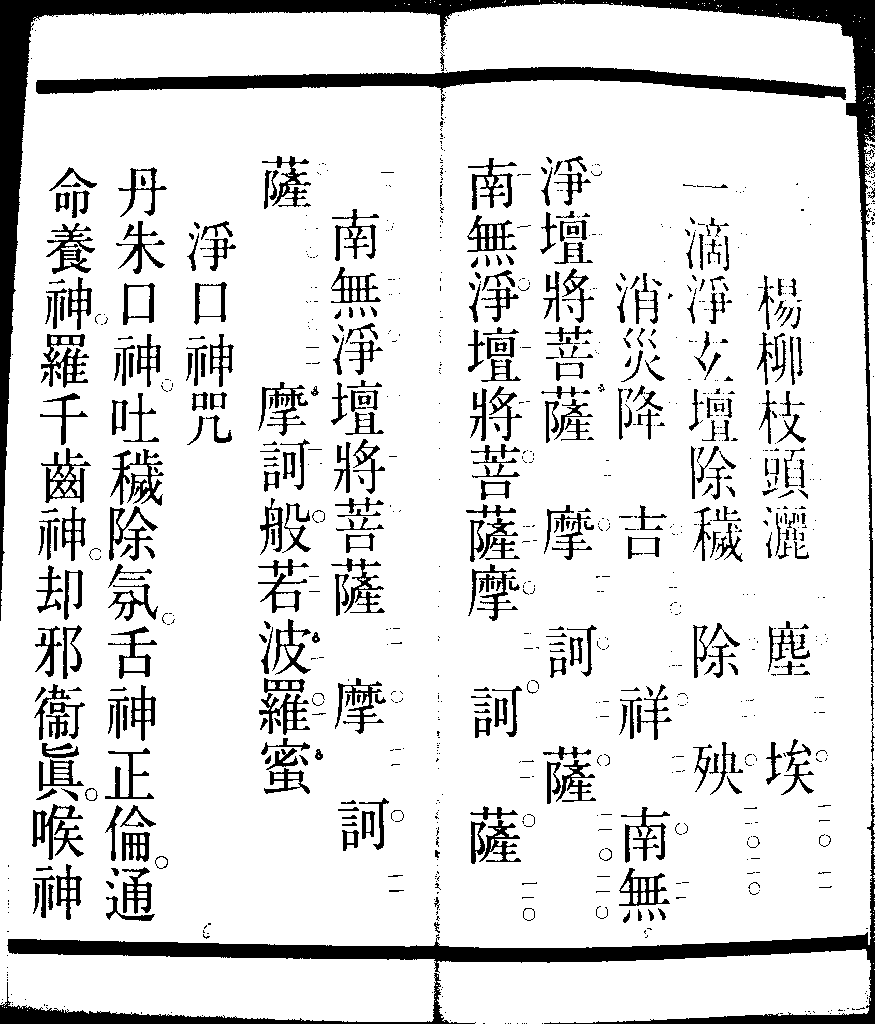 楊柳枝頭灑塵埃
一滴淨立壇除穢除殃
消災降吉祥南無
淨壇將菩薩摩訶薩
南無淨壇將菩薩摩訶薩
南無淨壇將菩薩摩訶
薩摩訶般若波羅蜜
淨口神咒
丹朱口神吐穢除氛舌神正倫通
命養神羅千齒神却邪衞眞喉神